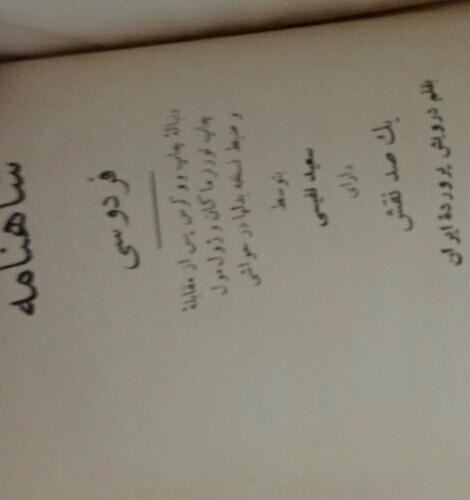 شاهنامه
فردوسی
دنبالهٔ چاپ وولرس پس از مقابلهٔ
چاپ تورنر ماکان و ژول مول
و ضبط نسخه بدلها در حواشی
بتوسط
سعید نفیسی
دارای
یک صد نقش
بقلم درویش پروردهٔ ایران